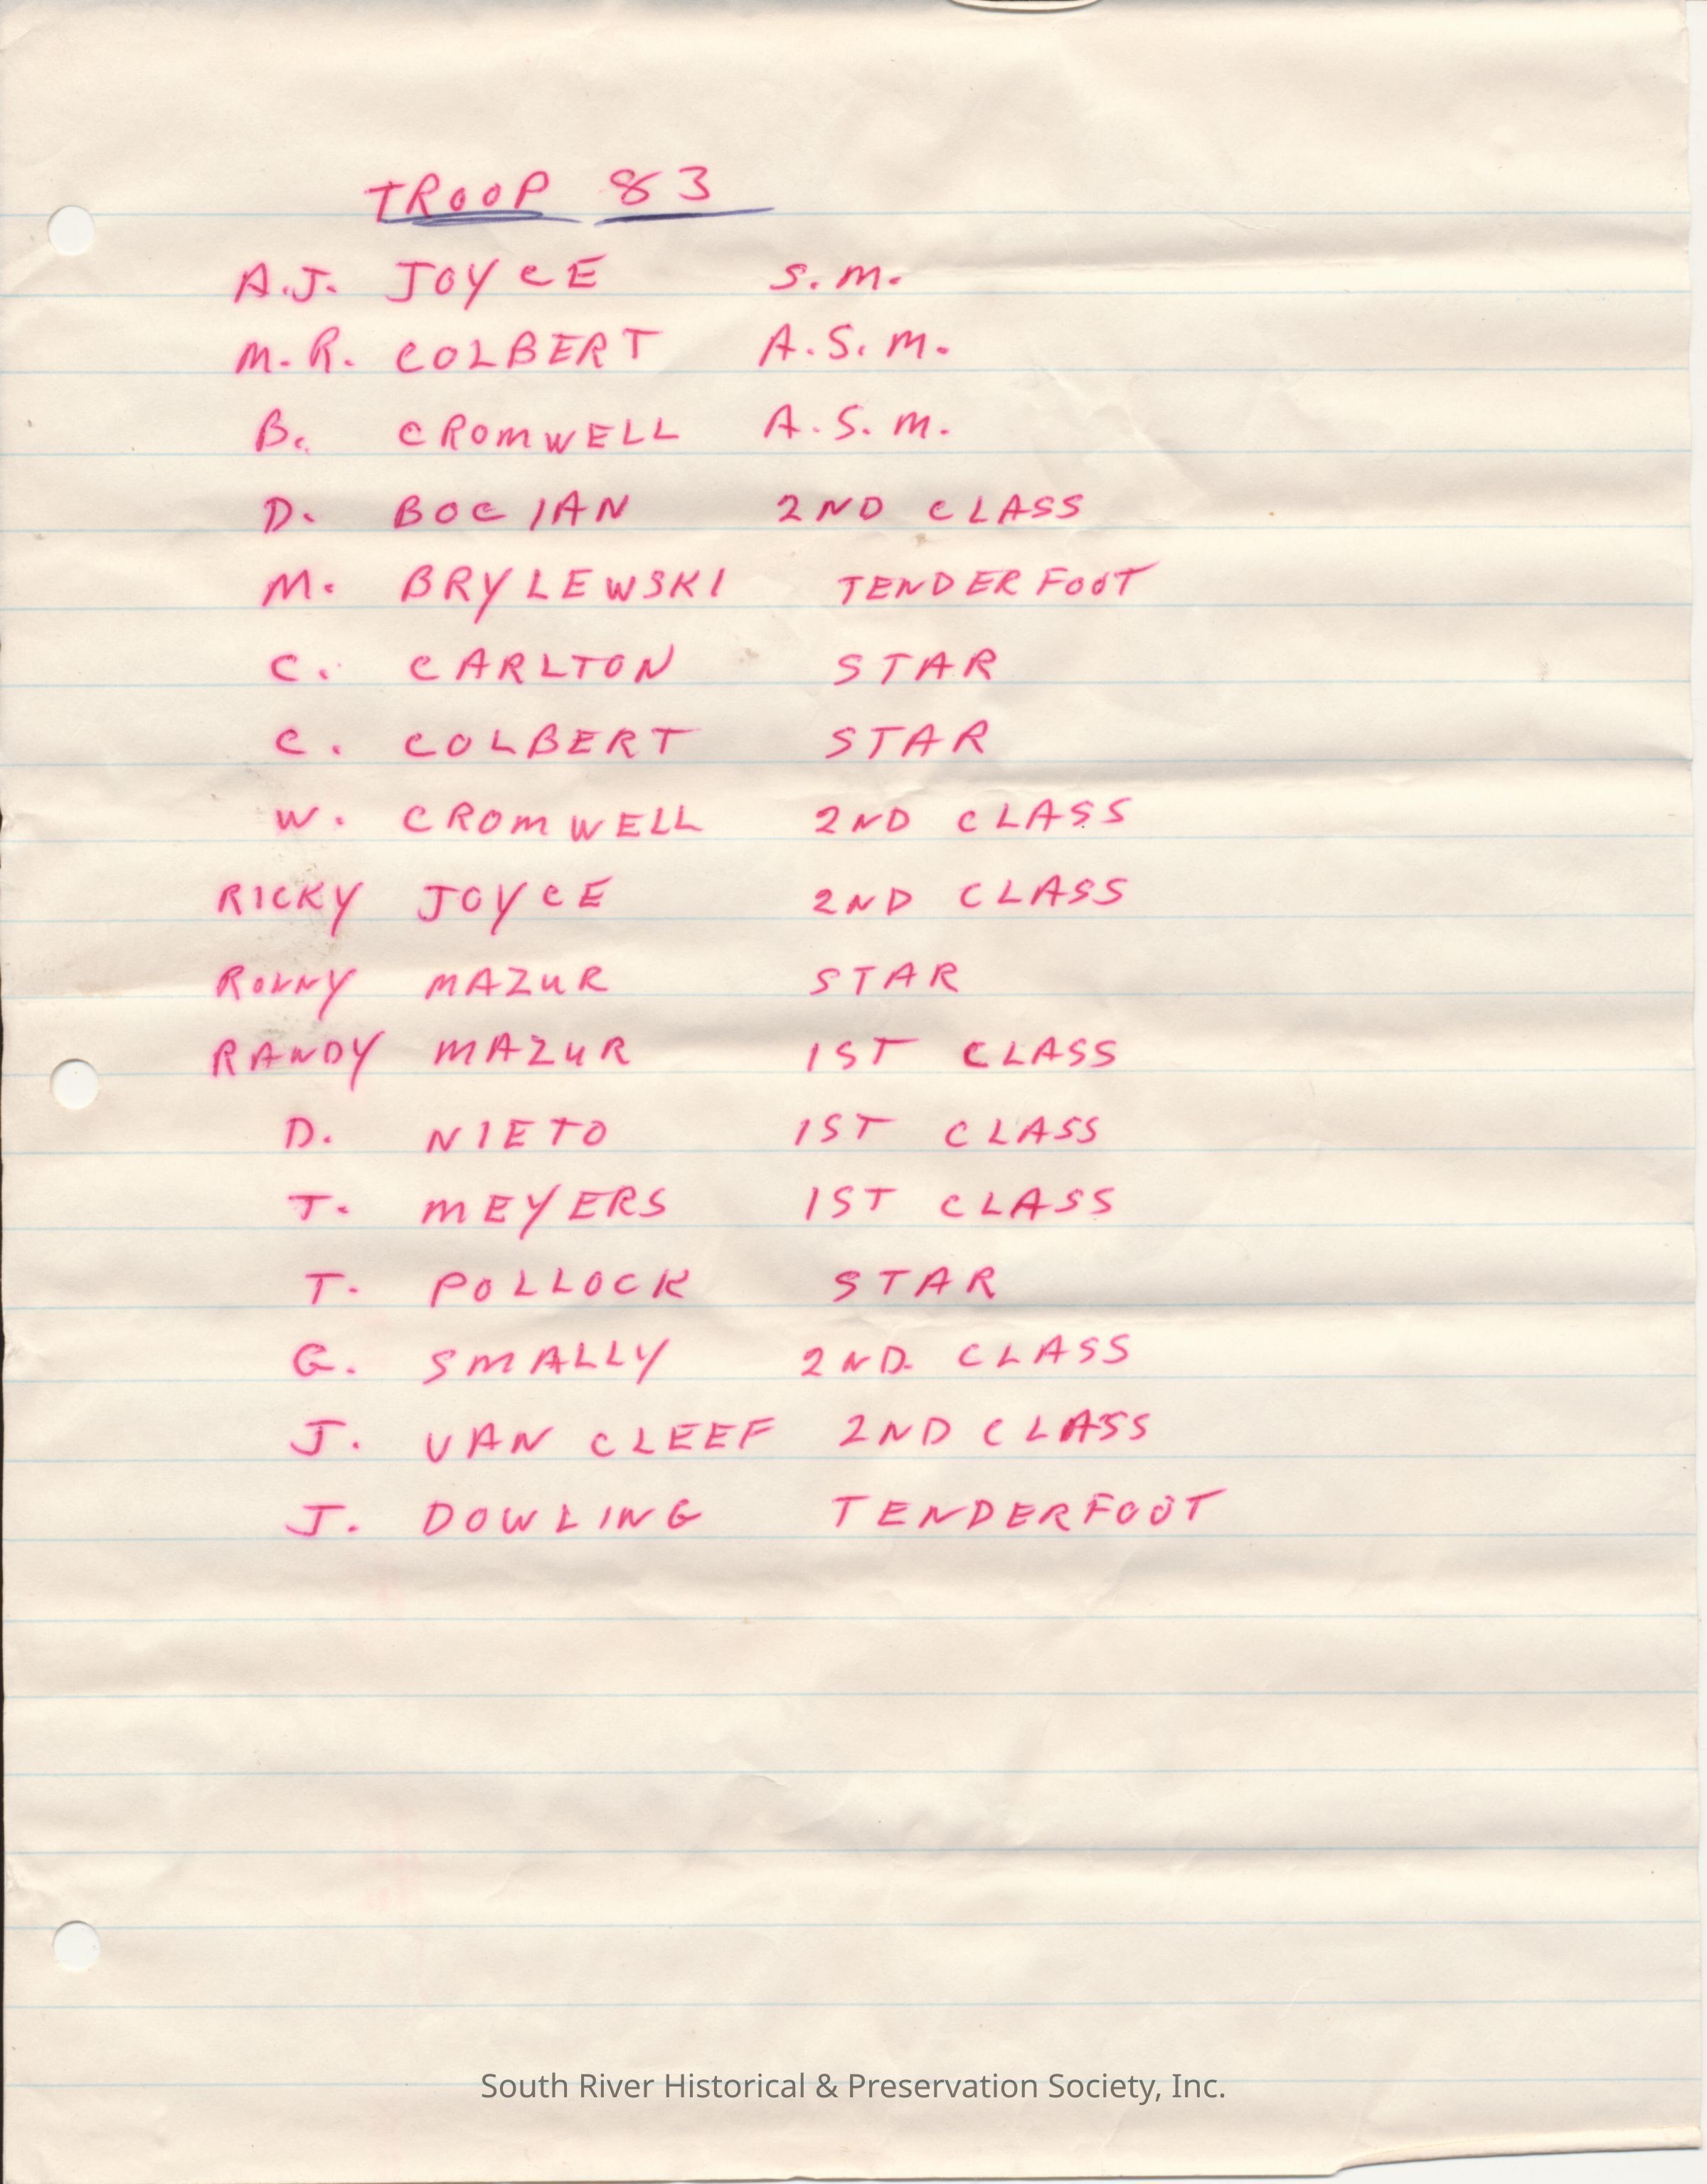 TROOP 83
A.J. JOYCE S.M.
M.R. COLBERT A.S.M.
B. CROMWELL A.S.M.
D. BOCIAN 2ND CLASS
M. BRYLEWSKI TENDERFOOT
C. CARLTON STAR
C. COLBERT STAR
W. CROMWELL 2ND CLASS
RICKY JOYCE 2ND CLASS
RONNY MAZUR STAR
RANDY MAZUR 1ST CLASS
D. NIETO 1ST CLASS
T. MEYERS 1ST CLASS
T. POLLOCK STAR
G. SMALLY 2ND. CLASS
J. VAN CLEEF 2ND CLASS
J. DOWLING TENDERFOOT
South River Historical & Preservation Society, Inc.